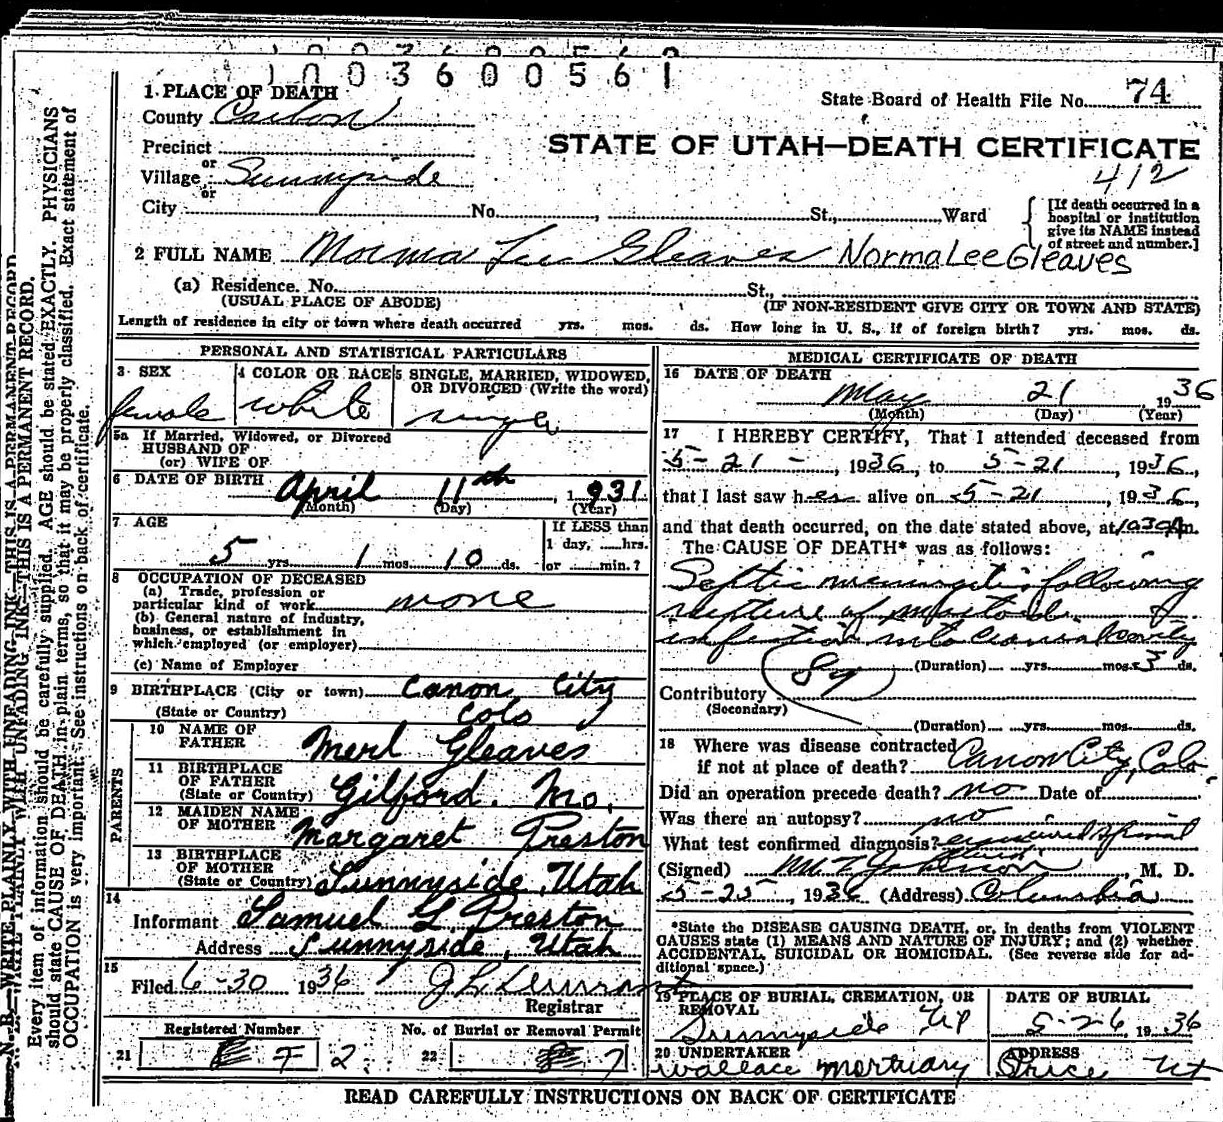 1003600561
1. PLACE OF DEATH
State Board of Health File No. 74
County Carbon
STATE OF UTAH—DEATH CERTIFICATE
Precinct
or
412
Village Sunnyside
or
City No. , St., Ward
[If death occurred in a
hospital or institution
give its NAME instead
of street and number.]
2 FULL NAME Norma Lee Gleaves Norma Lee Gleaves
(a) Residence. No. St.,
(USUAL PLACE OF ABODE) (IF NON-RESIDENT GIVE CITY OR TOWN AND STATE)
Length of residence in city or town where death occurred yrs. mos. ds. How long in U. S., if of foreign birth? yrs. mos. ds.
PERSONAL AND STATISTICAL PARTICULARS
3 SEX
female
4 COLOR OR RACE
white
5 SINGLE, MARRIED, WIDOWED,
OR DIVORCED (Write the word)
single
5a If Married, Widowed, or Divorced
HUSBAND OF
(or) WIFE OF
6 DATE OF BIRTH April 11th, 1931
(Month) (Day) (Year)
7 AGE
5 yrs. 1 mos. 10 ds.
If LESS than
1 day, hrs.
or min.?
8 OCCUPATION OF DECEASED
(a) Trade, profession or
particular kind of work none
(b) General nature of industry,
business, or establishment in
which employed (or employer)
(c) Name of Employer
9 BIRTHPLACE (City or town) Canon City
(State or Country) Colo
PARENTS
10 NAME OF
FATHER Merl Gleaves
11 BIRTHPLACE
OF FATHER
(State or Country) Gilford. Mo.
12 MAIDEN NAME
OF MOTHER Margaret Preston
13 BIRTHPLACE
OF MOTHER
(State or Country) Sunnyside, Utah
14
Informant Samuel G Preston
Address Sunnyside, Utah
15
Filed 6-30 1936
Registrar
Registered Number No. of Burial or Removal Permit
21 2 22 7
MEDICAL CERTIFICATE OF DEATH
16 DATE OF DEATH
May 21 1936
(Month) (Day) (Year)
17 I HEREBY CERTIFY, That I attended deceased from
5-21-, 1936, to 5-21, 1936,
that I last saw her alive on 5-21, 1936,
and that death occurred, on the date stated above, at 1030A m.
The CAUSE OF DEATH* was as follows:
Septic meningitis following
rupture of mastoid
infection into cranial cavity
(Duration) yrs. mos. 3 ds.
Contributory
(Secondary)
(Duration) yrs. mos. ds.
18 Where was disease contracted
if not at place of death? Canon City, Colo.
Did an operation precede death? no Date of
Was there an autopsy? no
What test confirmed diagnosis? spinal
(Signed) , M. D.
5-25, 1936 (Address) Columbia
*State the DISEASE CAUSING DEATH, or, in deaths from VIOLENT
CAUSES state (1) MEANS AND NATURE OF INJURY; and (2) whether
ACCIDENTAL, SUICIDAL OR HOMICIDAL. (See reverse side for ad-
ditional space.)
19 PLACE OF BURIAL, CREMATION, OR
REMOVAL
Sunnyside
DATE OF BURIAL
5-26, 1936
20 UNDERTAKER
Wallace Mortuary
ADDRESS
Price Ut
READ CAREFULLY INSTRUCTIONS ON BACK OF CERTIFICATE
N. B.—WRITE PLAINLY WITH UNFADING INK—THIS IS A PERMANENT RECORD.
Every item of information should be carefully supplied. AGE should be stated EXACTLY. PHYSICIANS
should state CAUSE OF DEATH in plain terms, so that it may be properly classified. Exact statement of
OCCUPATION is very important. See instructions on back of certificate.